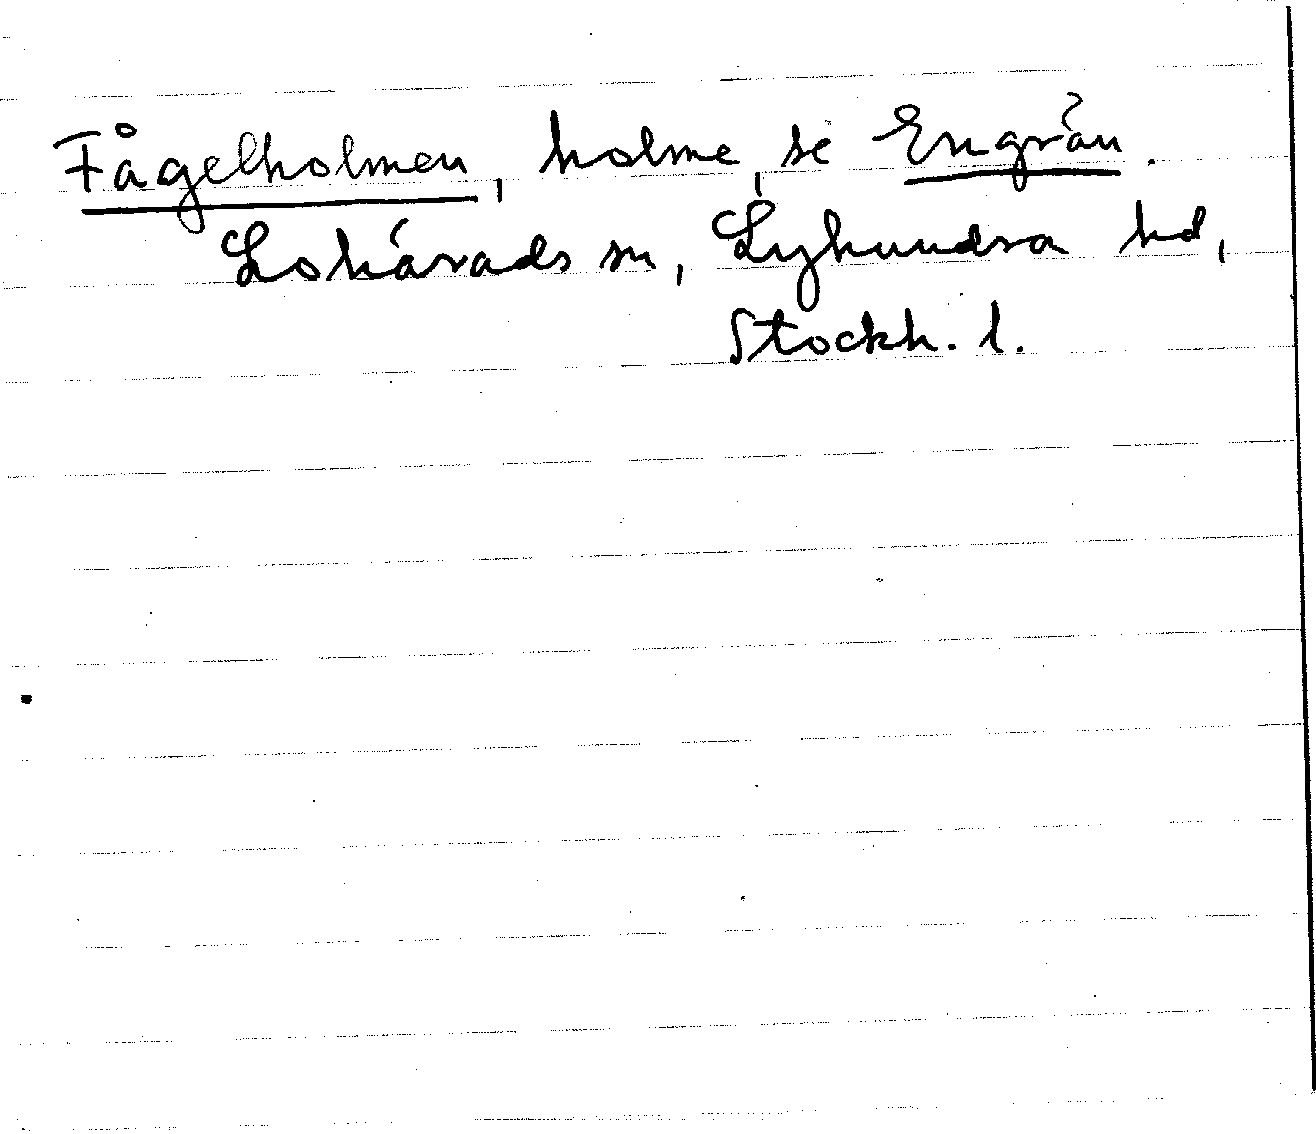 Fågelholmen, holme, se Engrän.
Lohärads sn, Lyhundra hd,
Stockh. l.